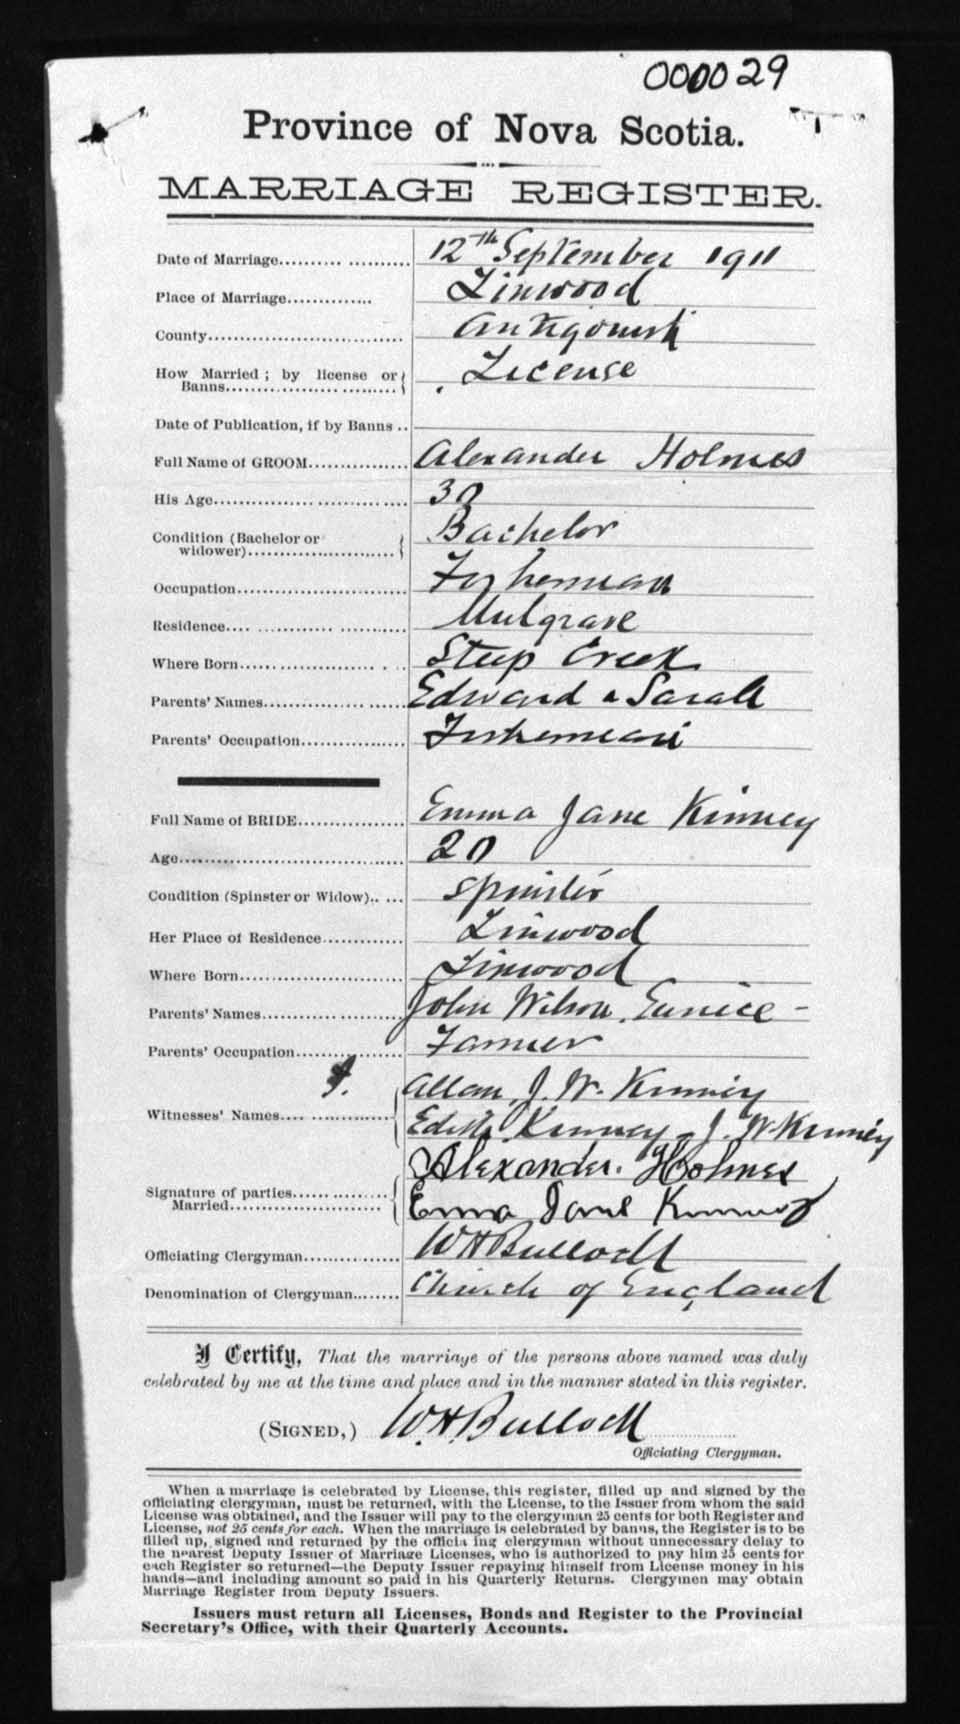 000029
Province of Nova Scotia.
MARRIAGE REGISTER.
Date of Marriage.......... .......... 12th September 1911
Place of Marriage.............. Linwood
County.............................. Antigonish
How Married ; by license or License
Banns..............................
Date of Publication, if by Banns ..
Full Name of GROOM................ Alexander Holmes
His Age.............................. 30
Condition (Bachelor or Bachelor
widower)........................
Occupation........................... Fisherman
Residence.... ............ .......... Mulgrave
Where Born...................... . .. Steep Creek
Parents' Names.............. ...... Edward & Sarah
Parents' Occupation................. Fisherman
Full Name of BRIDE................ Emma Jane Kinney
Age.................................. 20
Condition (Spinster or Widow).. ... Spinster
Her Place of Residence............. Linwood
Where Born.......................... Linwood
Parents' Names............. ........ John Wilson Eunice -
Parents' Occupation................. Farmer
Allan, J. W. Kinney
Witnesses' Names.... ...............
Edith Kinney - J. W. Kinney
Alexander. Holmes
Signature of parties...............
Married........................ Emma Jane Kinney
Officiating Clergyman.............. W H Bullock
Denomination of Clergyman....... Church of England
I Certify, That the marriage of the persons above named was duly
celebrated by me at the time and place and in the manner stated in this register.
(SIGNED,) W. H. Bullock
Officiating Clergyman.
When a marriage is celebrated by License, this register, filled up and signed by the
officiating clergyman, must be returned, with the License, to the Issuer from whom the said
License was obtained, and the Issuer will pay to the clergyman 25 cents for both Register and
License, not 25 cents for each. When the marriage is celebrated by banns, the Register is to be
filled up, signed and returned by the officia ing clergyman without unnecessary delay to
the nearest Deputy Issuer of Marriage Licenses, who is authorized to pay him 25 cents for
each Register so returned—the Deputy Issuer repaying himself from License money in his
hands—and including amount so paid in his Quarterly Returns. Clergymen may obtain
Marriage Register from Deputy Issuers.
Issuers must return all Licenses, Bonds and Register to the Provincial
Secretary's Office, with their Quarterly Accounts.